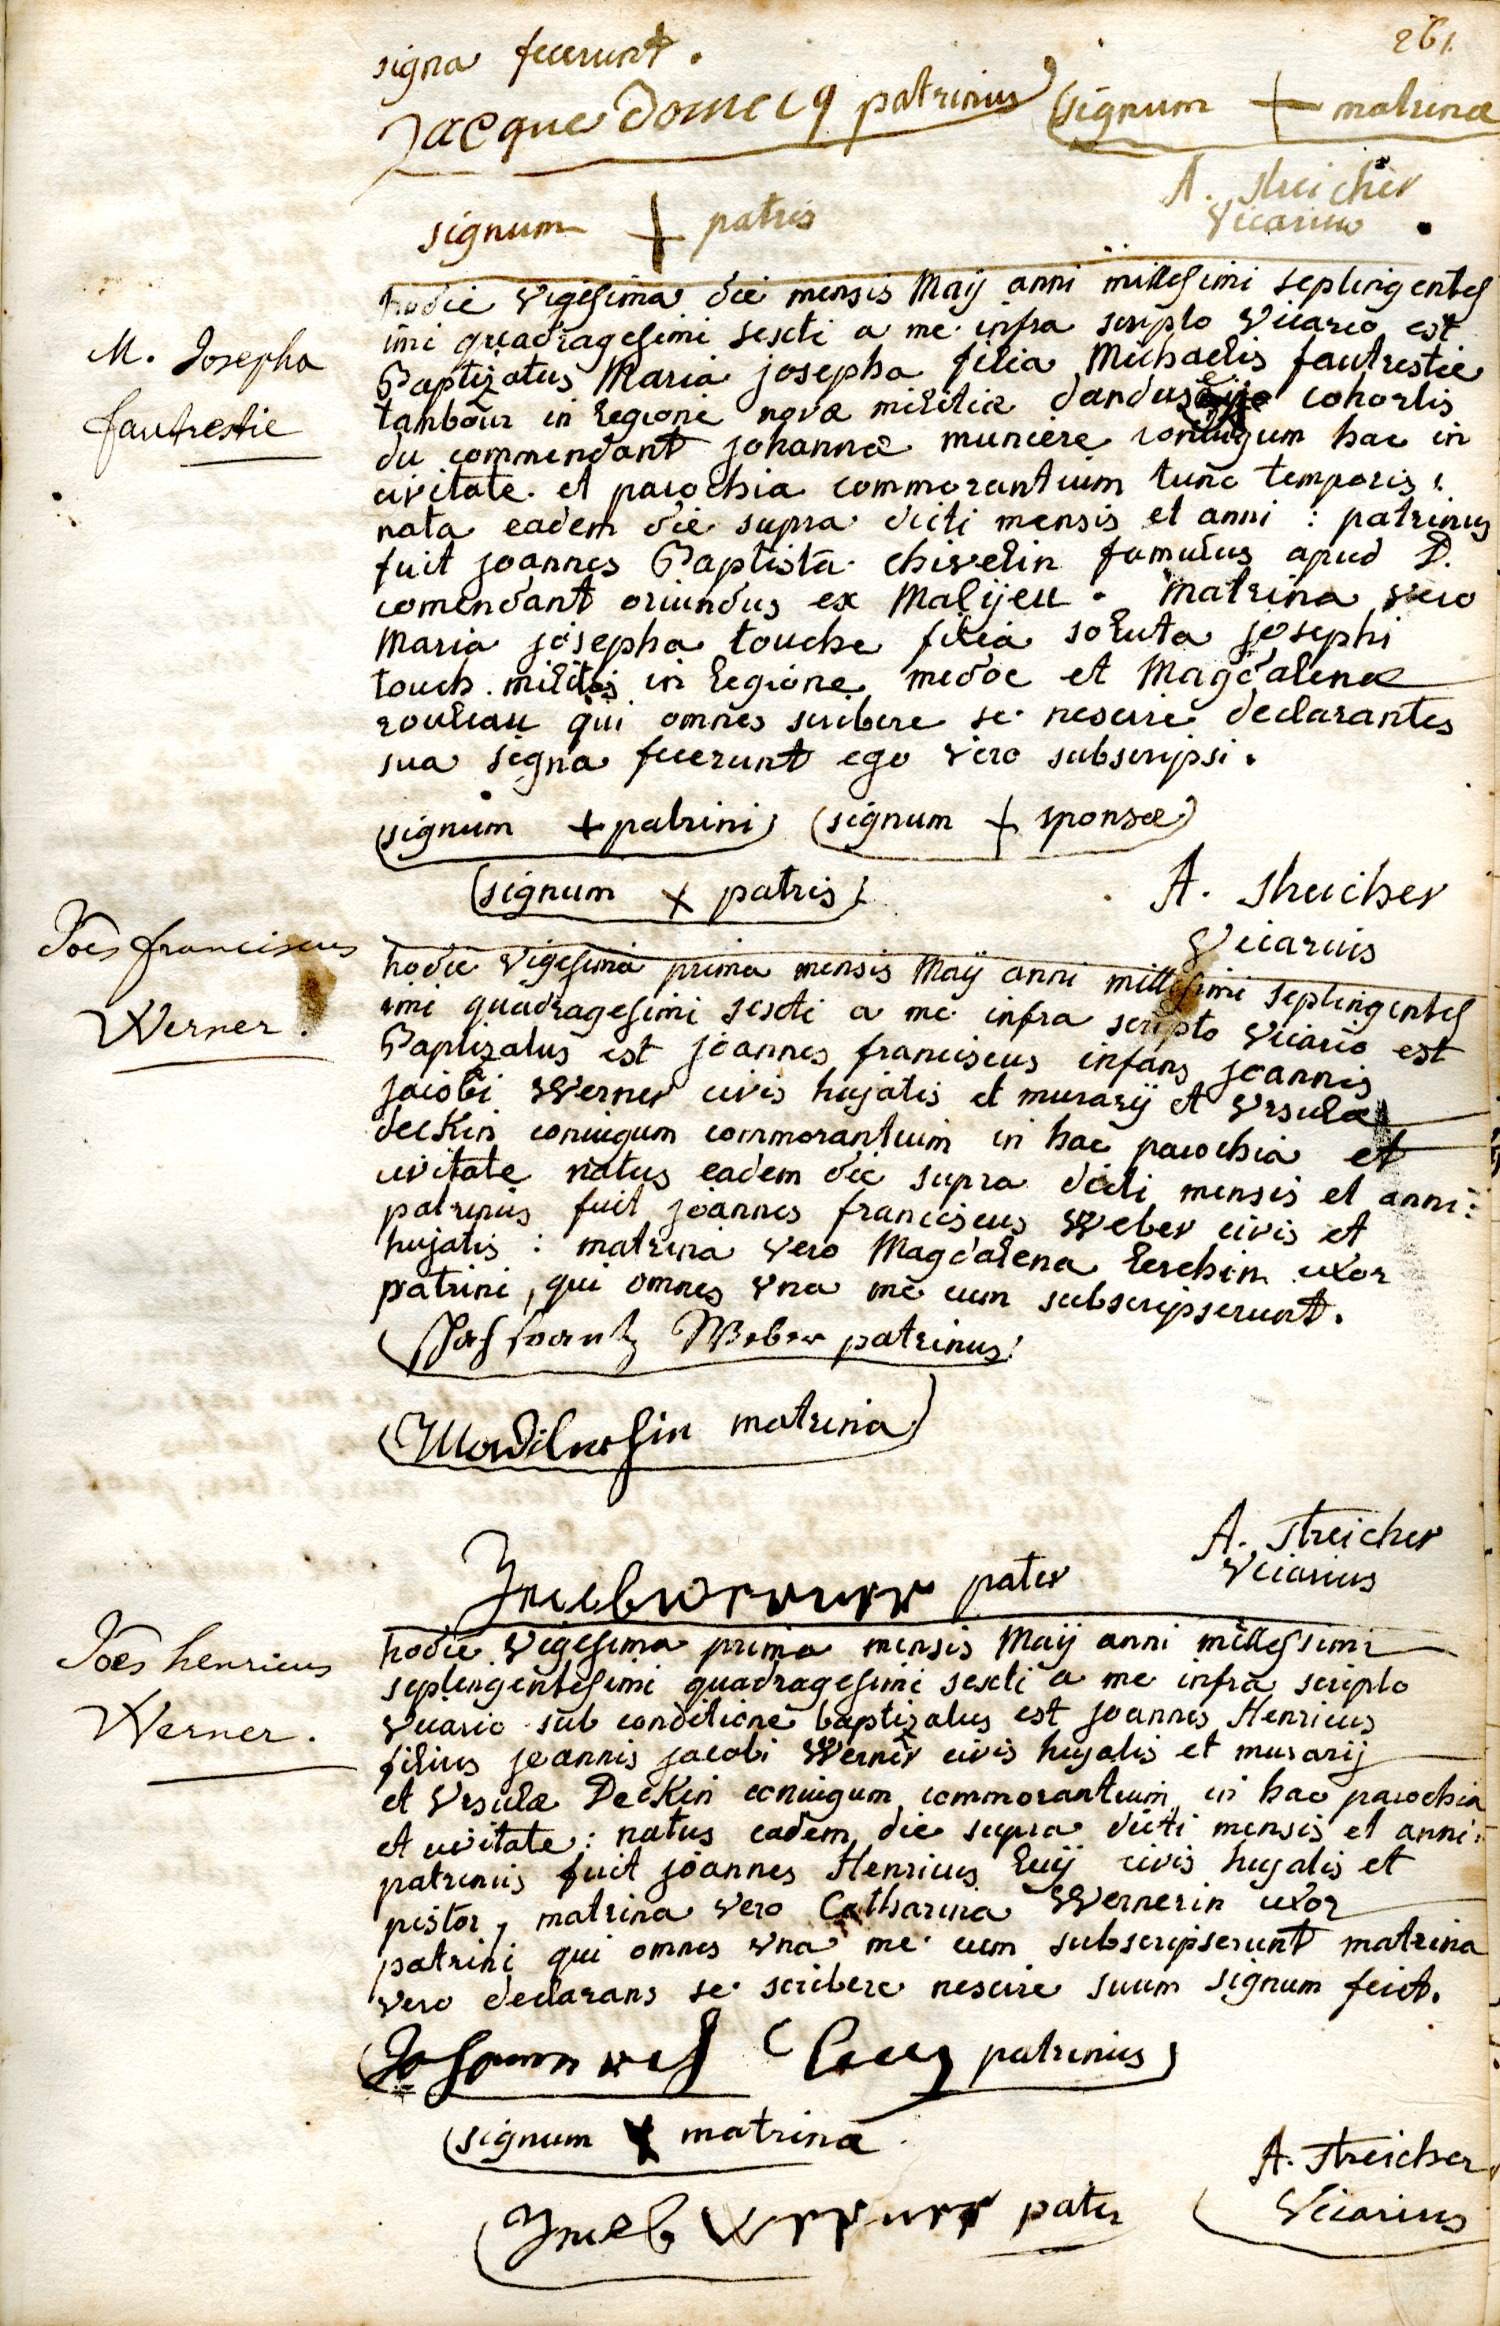 261.
signa fecerunt.
Jacque Domecq patrinus signum + matrinæ
A. Streicher
signum + patris
Vicarius
M. Josepha
fautrestie
hodie vigesima die mensis Maij anni millesimi septingentes
imi quadragesimi sexti a me infra scripto Vicario est
Baptizatus Maria josepha filia Michaelis fautrestie
tambour in legione novæ militiæ dandus cohortis
du commendant johannæ muniere coniugum hac in
civitate et parochia commorantium tunc temporis:
nata eadem die supra dicti mensis et anni: patrinus
fuit joannes Baptista chivelin famulus apud D.
comendant oriundus ex Malijeu. Matrina vero
Maria josepha touche filia soluta josephi
touch. militis in legione medoc et Magdalenæ
rouleau qui omnes scribere se nescire declarantes
sua signa fecerunt ego vero subscripsi.
signum + patrini signum + sponsæ
signum x patris
A. Streicher
Vicarius
Joes franciscus
Werner.
hodie vigesima prima mensis Maij anni millesimi septingentes
imi quadragesimi sexti a me infra scripto Vicario est
Baptizatus est joannes franciscus infans joannis
jacobi Werner civis hujatis et murarij et Vrsulæ
deckin coniugum commorantium in hac parochia et
civitate natus eadem die supra dicti mensis et anni:
patrinus fuit joannes franciscus Weber civis et
hujatis: matrina vero Magdalena lerchin uxor
patrini, qui omnes vna me cum subscripserunt.
frantz Weber patrinus
matrina
A. Streicher
Vicarius
Jacob Werner pater
Joes henricus
Werner.
hodie vigesima prima mensis Maij anni millesimi
septingentesimi quadragesimi sexti a me infra scripto
Vicario sub conditione baptizatus est joannes Henricus
filius joannis jacobi Werner civis hujatis et murarij
et Vrsulæ Deckin coniugum commorantium in hac parochia
et civitate: natus eadem die supra dicti mensis et anni:
patrinus fuit joannes Henricus Luij civis hujatis et
pistor, matrina vero Catharina Wernerin uxor
patrini qui omnes vna me cum subscripserunt matrina
vero declarans se scribere nescire suum signum fecit.
patrinus
signum x matrinæ
A. Streicher
Jacob Werner pater
Vicarius